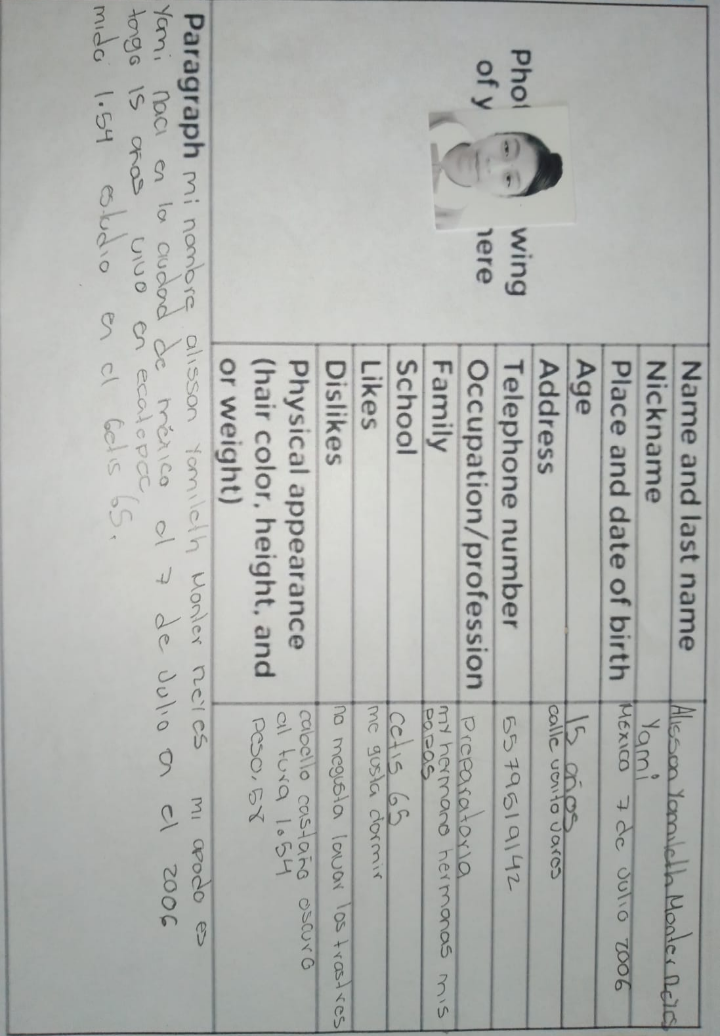 Phot wing
of y here
Name and last name Alisson Yamileth Monter Reyes
Nickname Yami
Place and date of birth México 7 de Julio 2006
Age 15 años
Address calle venito Juares
Telephone number 5579519142
Occupation/profession Preparatoria
Family my hermano hermanas mis
papas
School cetis 65
Likes me gusta dormir
Dislikes no megusta lavar los trastres
Physical appearance
(hair color, height, and
or weight)
cabello castaño oscuro
al tura 1.54
Peso, 58
Paragraph mi nombre alisson Yamileth Monter reyes mi apodo es
Yami naci en la ciudad de méxico el 7 de Julio en el 2006
tengo 15 años vivo en ecatepec
mido 1.54 estudio en el cetis 65.